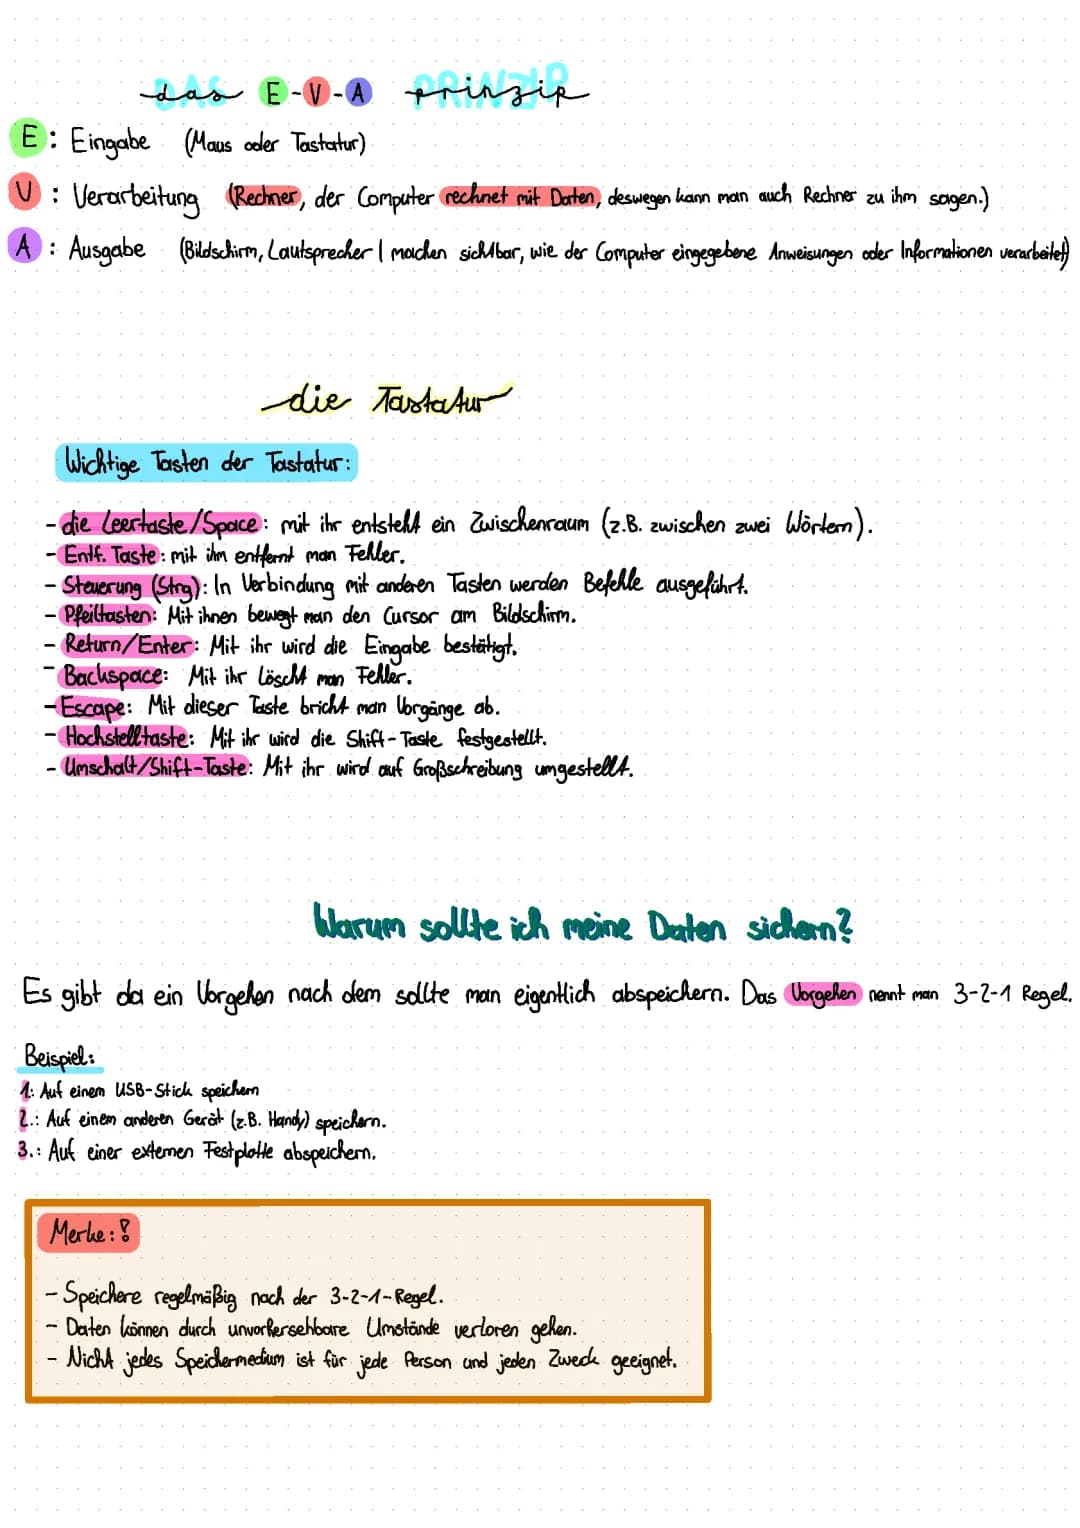 das E-V-A prinzip
E: Eingabe (Maus oder Tastatur)
V: Verarbeitung (Rechner, der Computer rechnet mit Daten, deswegen kann man auch Rechner zu ihm sagen.)
A: Ausgabe (Bildschirm, Lautsprecher | machen sichtbar, wie der Computer eingegebene Anweisungen oder Informationen verarbeitet)
die Tastatur
Wichtige Tasten der Tastatur:
- die Leertaste/Space: mit ihr entsteht ein Zwischenraum (z.B. zwischen zwei Wörtern).
- Entf. Taste: mit ihm entfernt man Fehler.
- Steuerung (Strg): In Verbindung mit anderen Tasten werden Befehle ausgeführt.
- Pfeiltasten: Mit ihnen bewegt man den Cursor am Bildschirm.
- Return/Enter: Mit ihr wird die Eingabe bestätigt.
- Backspace: Mit ihr Löscht man Fehler.
- Escape: Mit dieser Taste bricht man Vorgänge ab.
- Hochstelltaste: Mit ihr wird die Shift-Taste festgestellt.
- Umschalt/Shift-Taste: Mit ihr wird auf Großschreibung umgestellt.
Warum sollte ich meine Daten sichern?
Es gibt da ein Vorgehen nach dem sollte man eigentlich abspeichern. Das Vorgehen nennt man 3-2-1 Regel.
Beispiel:
1.: Auf einem USB-Stick speichern
2.: Auf einem anderen Gerät (z.B. Handy) speichern.
3.: Auf einer externen Festplatte abspeichern.
Merke:!
- Speichere regelmäßig nach der 3-2-1-Regel.
- Daten können durch unvorhersehbare Umstände verloren gehen.
- Nicht jedes Speichermedium ist für jede Person und jeden Zweck geeignet.